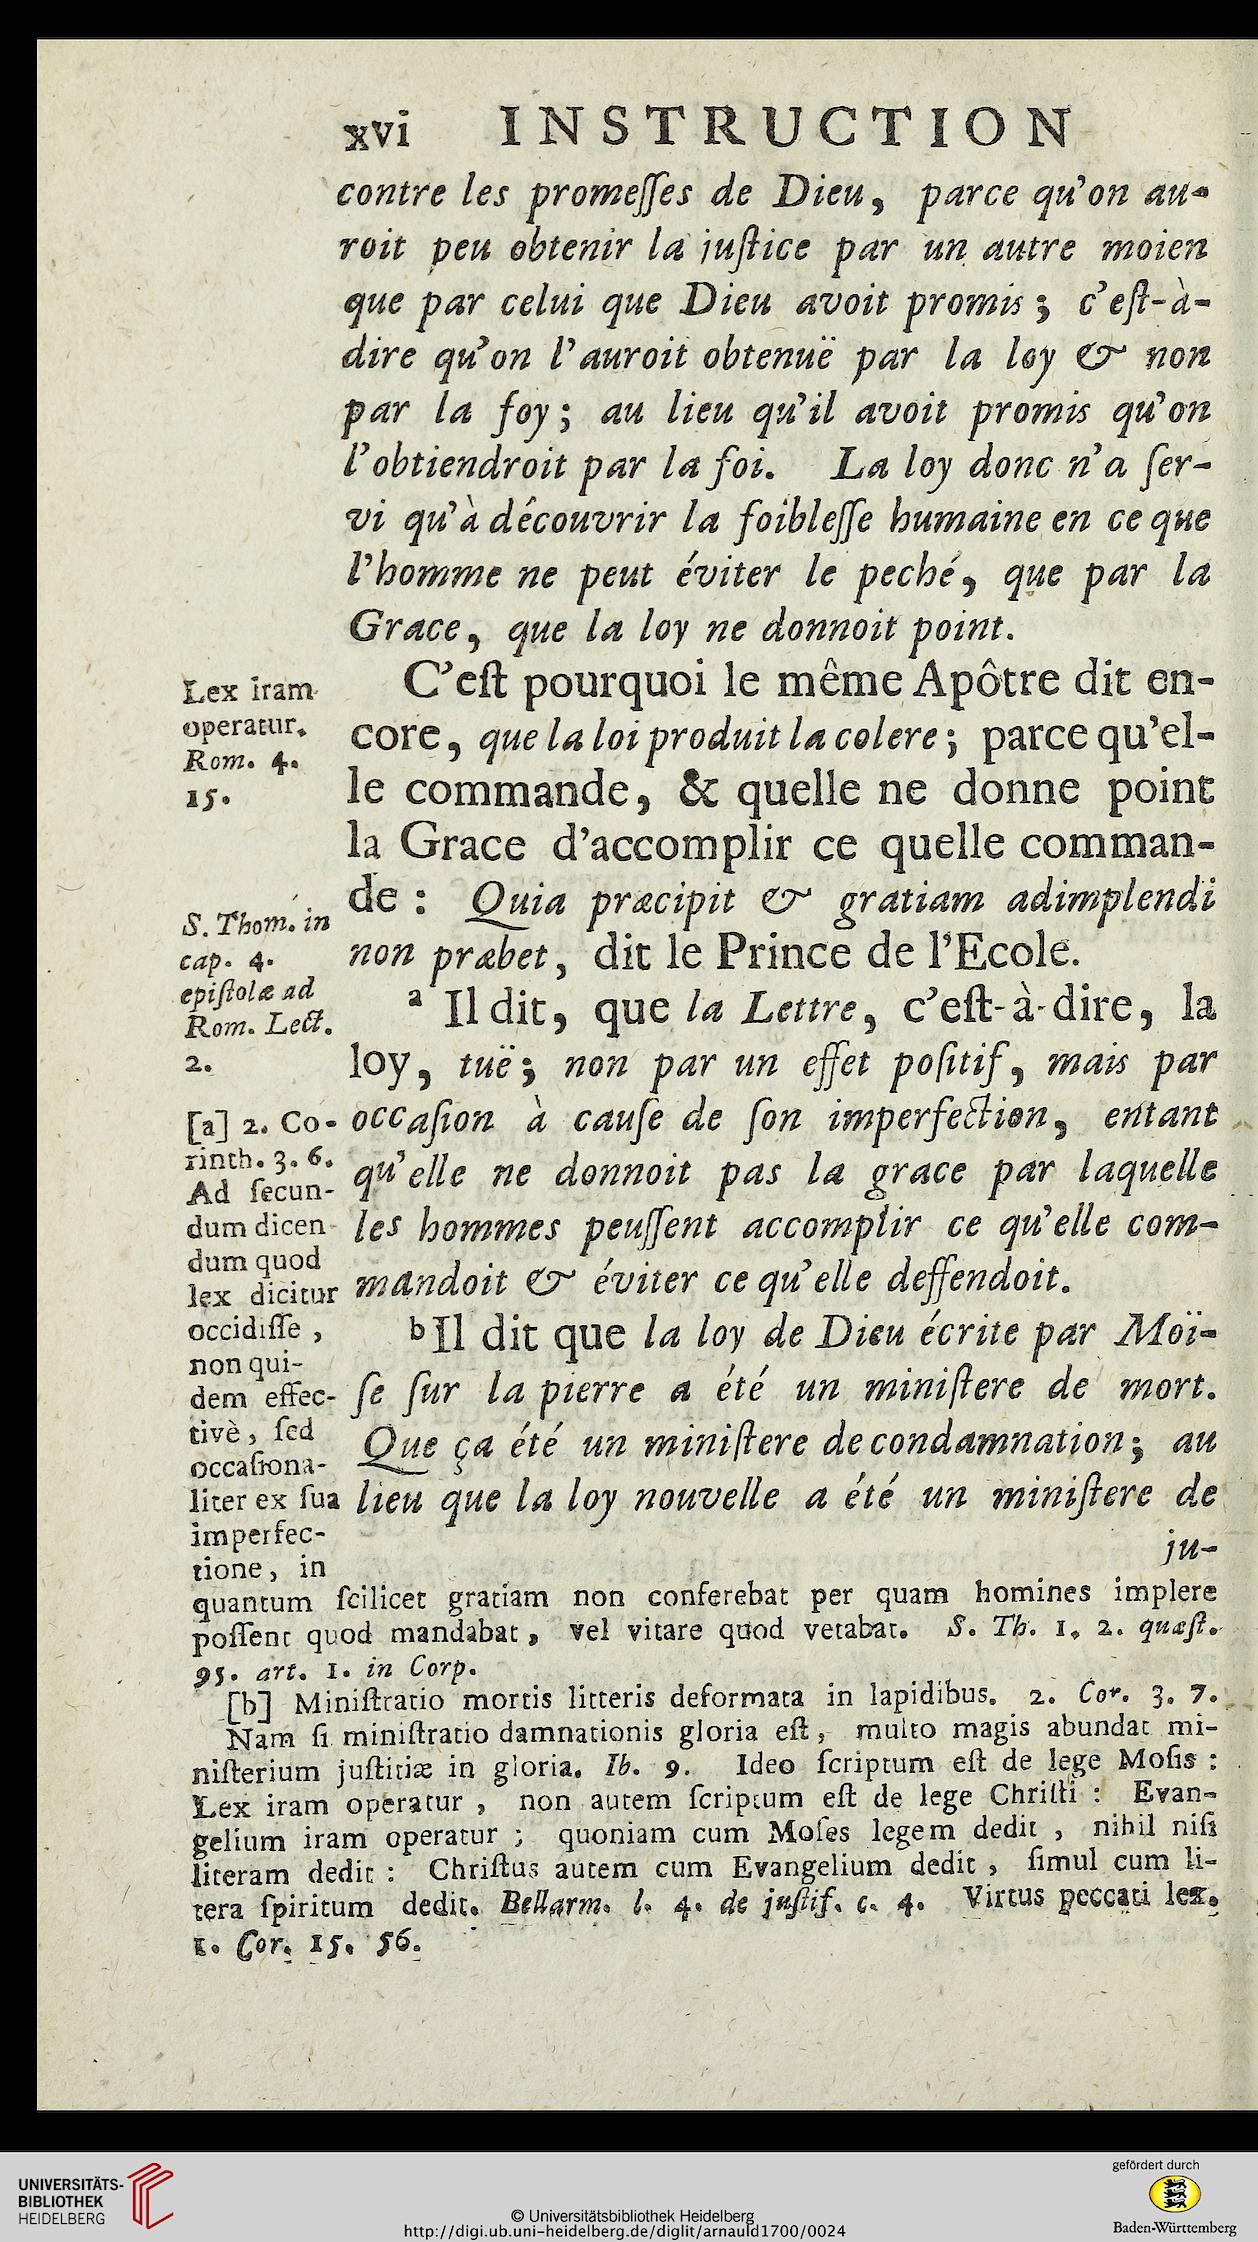 xvi INSTRUCTION
contre les promeſſes de Dieu, parce qu'on au-
roit peu obtenir la juſtice par un autre moien
que par celui que Dieu avoit promis; c'eſt-à-
dire qu'on l'auroit obtenuë par la loy & non
par la foy; au lieu qu'il avoit promis qu'on
l'obtiendroit par la foi. La loy donc n'a ſer-
vi qu'à découvrir la foibleſſe humaine en ce que
l'homme ne peut éviter le peché, que par la
Grace, que la loy ne donnoit point.
C'eſt pourquoi le même Apôtre dit en-
core, que la loi produit la colere; parce qu'el-
le commande, & quelle ne donne point
la Grace d'accomplir ce quelle comman-
de: Quia præcipit & gratiam adimplendi
non præbet, dit le Prince de l'Ecole.
a Il dit, que la Lettre, c'eſt-à-dire, la
loy, tuë; non par un effet poſitif, mais par
occaſion à cauſe de ſon imperfection, entant
qu'elle ne donnoit pas la grace par laquelle
les hommes peuſſent accomplir ce qu'elle com-
mandoit & éviter ce qu'elle deffendoit.
b Il dit que la loy de Dieu écrite par Moï-
ſe ſur la pierre a été un miniſtere de mort.
Que ça été un miniſtere de condamnation; au
lieu que la loy nouvelle a été un miniſtere de
ju-
Lex iram
operatur.
Rom. 4.
15.
S. Thom. in
cap. 4.
epiſtolæ ad
Rom. Lect.
2.
[a] 2. Co-
rinth. 3. 6.
Ad ſecun-
dum dicen
dum quod
lex dicitur
occidiſſe,
non qui-
dem effec-
tivè, ſed
occaſiona-
liter ex ſua
imperfec-
tione, in
quantum ſcilicet gratiam non conferebat per quam homines implere
poſſent quod mandabat, vel vitare quod vetabat. S. Th. 1. 2. quæſt.
95. art. 1. in Corp.
[b] Miniſtratio mortis litteris deformata in lapidibus. 2. Cor. 3. 7.
Nam ſi miniſtratio damnationis gloria eſt, multo magis abundat mi-
niſterium juſtitiæ in gloria. Ib. 9. Ideo ſcriptum eſt de lege Moſis:
Lex iram operatur, non autem ſcriptum eſt de lege Chriſti: Evan-
gelium iram operatur; quoniam cum Moſes legem dedit, nihil niſi
literam dedit: Chriſtus autem cum Evangelium dedit, ſimul cum li-
tera ſpiritum dedit. Bellarm. l. 4. de juſtif. c. 4. Virtus peccati lex.
1. Cor. 15. 56.
UNIVERSITÄTS-
BIBLIOTHEK
HEIDELBERG
© Universitätsbibliothek Heidelberg
http://digi.ub.uni-heidelberg.de/diglit/arnauld1700/0024
gefördert durch
Baden-Württemberg